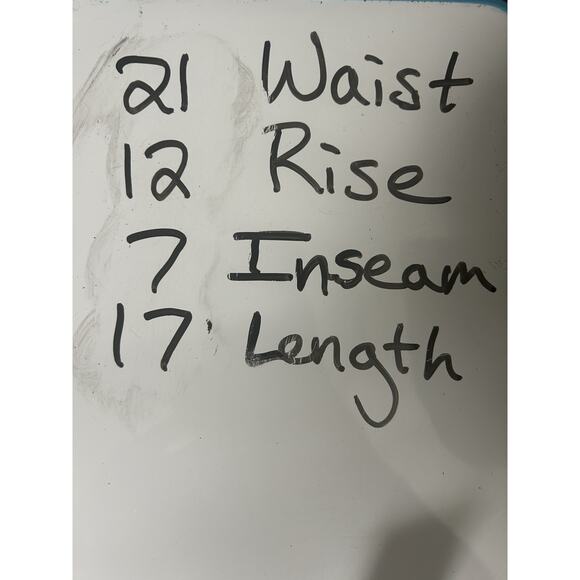 21 Waist
12 Rise
7 Inseam
17 Length